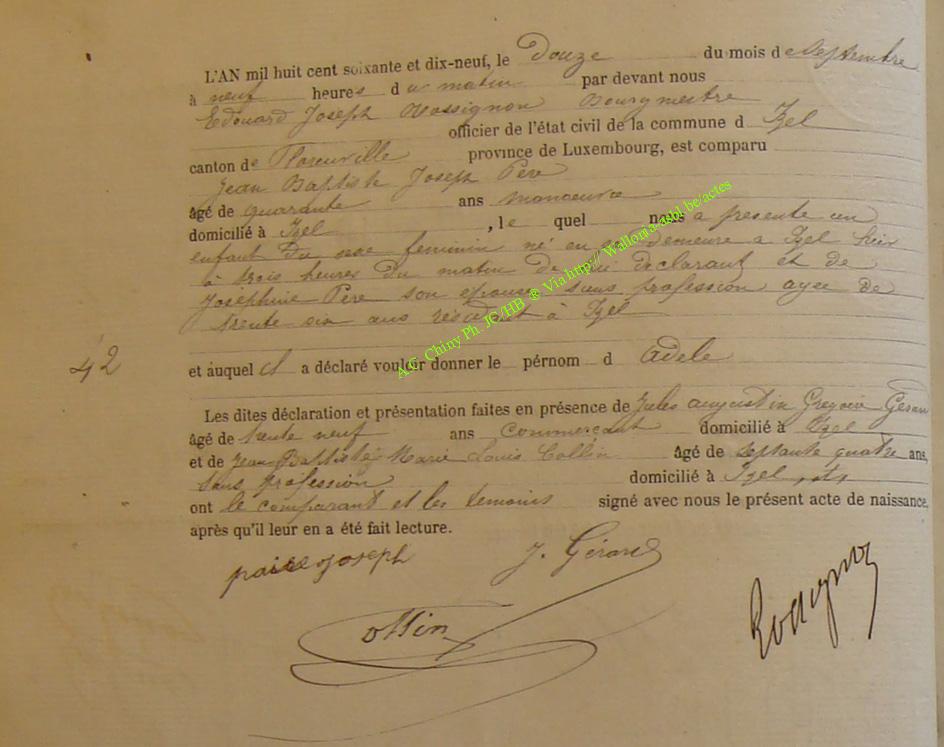 L'AN mil huit cent soixante et dix-neuf, le Douze du mois de Septembre
à neuf heures d u matin par devant nous
Edouard Joseph Rossignon Bourgmestre
officier de l'état civil de la commune d Izel
canton de Florenville province de Luxembourg, est comparu
Jean Baptiste Joseph Père
âgé de quarante ans manoeuvre
domicilié à Izel , le quel nous a presente un
enfant du sexe feminin né en sa demeure a Izel hier
à trois heures du matin de lui declarant et de
Josephine Père son epouse sans profession agee de
trente six ans residant à Izel
42
et auquel il a déclaré vouloir donner le pérnom d Adele
Les dites déclaration et présentation faites en présence de Jules Augustin Gregoire Gerard
âgé de trente neuf ans commerçant domicilié à Izel
et de Jean Baptiste Marie Louis Collin âgé de septante quatre ans,
sans profession domicilié à Izel
ont le comparant et les temoins signé avec nous le présent acte de naissance,
après qu'il leur en a été fait lecture.
joseph J. Gérard
ollin
Rossignon
A.C. Chiny Ph. JC/HB ® Via http// Wallonia-asbl.be/actes